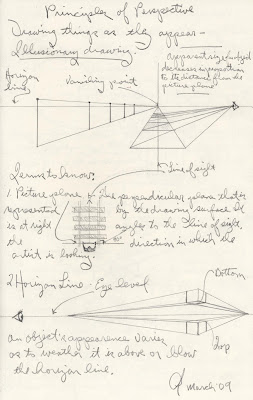 Principles of Perspective
Drawing things as they appear -
Illusionary drawing.
apparent size of object
decreases in proportion
to its distance from the
picture plane
Horizon
line
Vanishing point
Terms to know:
Line of sight
1. Picture plane - The perpendicular plane that is
represented by the drawing surface. It
is at right angles to the line of sight,
the direction in which the
artist is looking.
2. Horizon Line - Eye level
Bottom
Top
an object's appearence varies
as to weather it is above or blow
the horizon line.
March '09